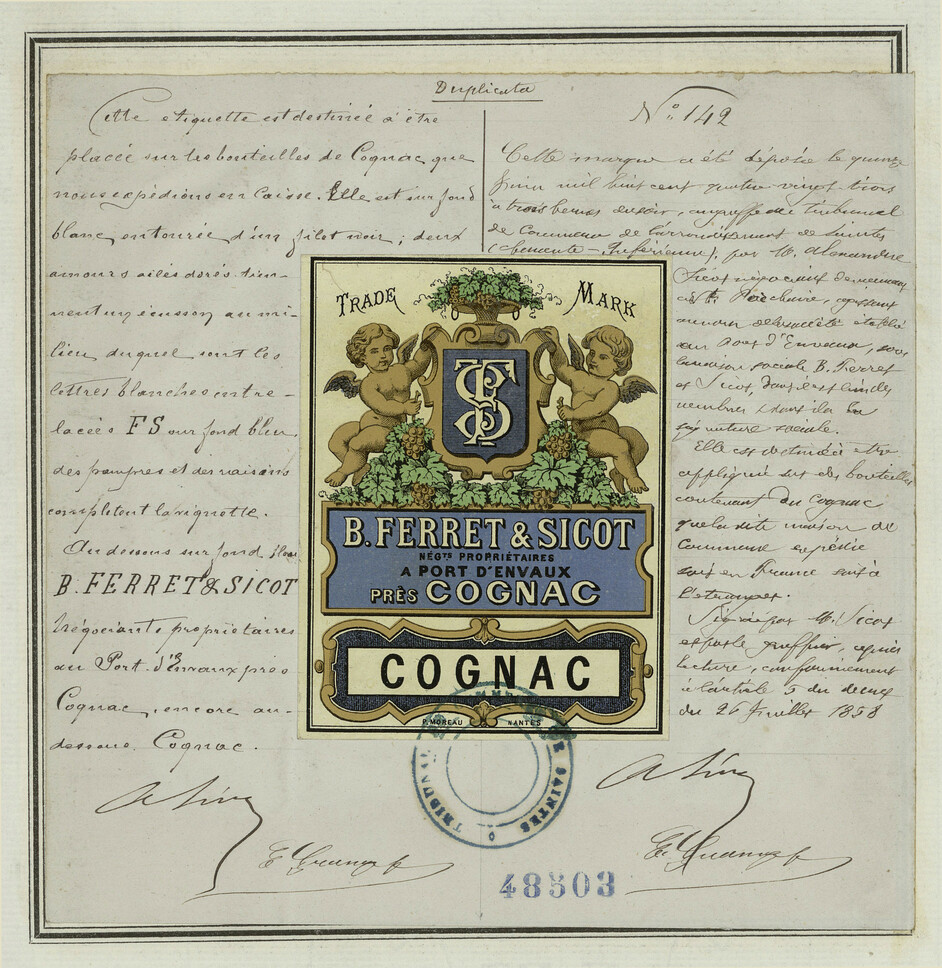 Duplicata
Cette etiquette est destinée à être
placée sur les bouteilles de Cognac que
nous expédions en Caisse. Elle est sur fond
blanc entourée d'un filet noir ; deux
amours ailés dorés tien-
nent un écusson au mi-
lieu duquel sont les
lettres blanches entre-
lacées FS sur fond bleu,
des pampres et des raisins
complètent la vignette.
Au dessous sur fond bleu
B. FERRET & SICOT
Négociants propriétaires
au Port d'Envaux près
Cognac, encore au-
dessous Cognac.
N° 142
Cette marque a été déposée le quinze
Juin mil huit cent quatre vingt trois
à trois heures du soir, au greffe du Tribunal
de Commerce de l'arrondissement de Saintes
(Charente-Inférieure), par M. Alexandre
Sicot négociant demeurant
agissant
au nom de la société établie
au Port d'Envaux, sous
la raison sociale B. Ferret
et Sicot, dont il est l'un des
membres
signature sociale.
Elle est destinée à être
appliquée sur des bouteilles
contenant du Cognac
que la dite maison de
Commerce expédie
soit en France soit à
l'étranger.
Signé par M. Sicot
et par le greffier, après
lecture, conformément
à l'article 5 du décret
du 26 Juillet 1858
TRADE MARK
FS
B. FERRET & SICOT
NÉGTS PROPRIÉTAIRES
A PORT D'ENVAUX
PRÈS COGNAC
COGNAC
P. MOREAU NANTES
TRIBUNAL DE COMMERCE DE SAINTES
48503